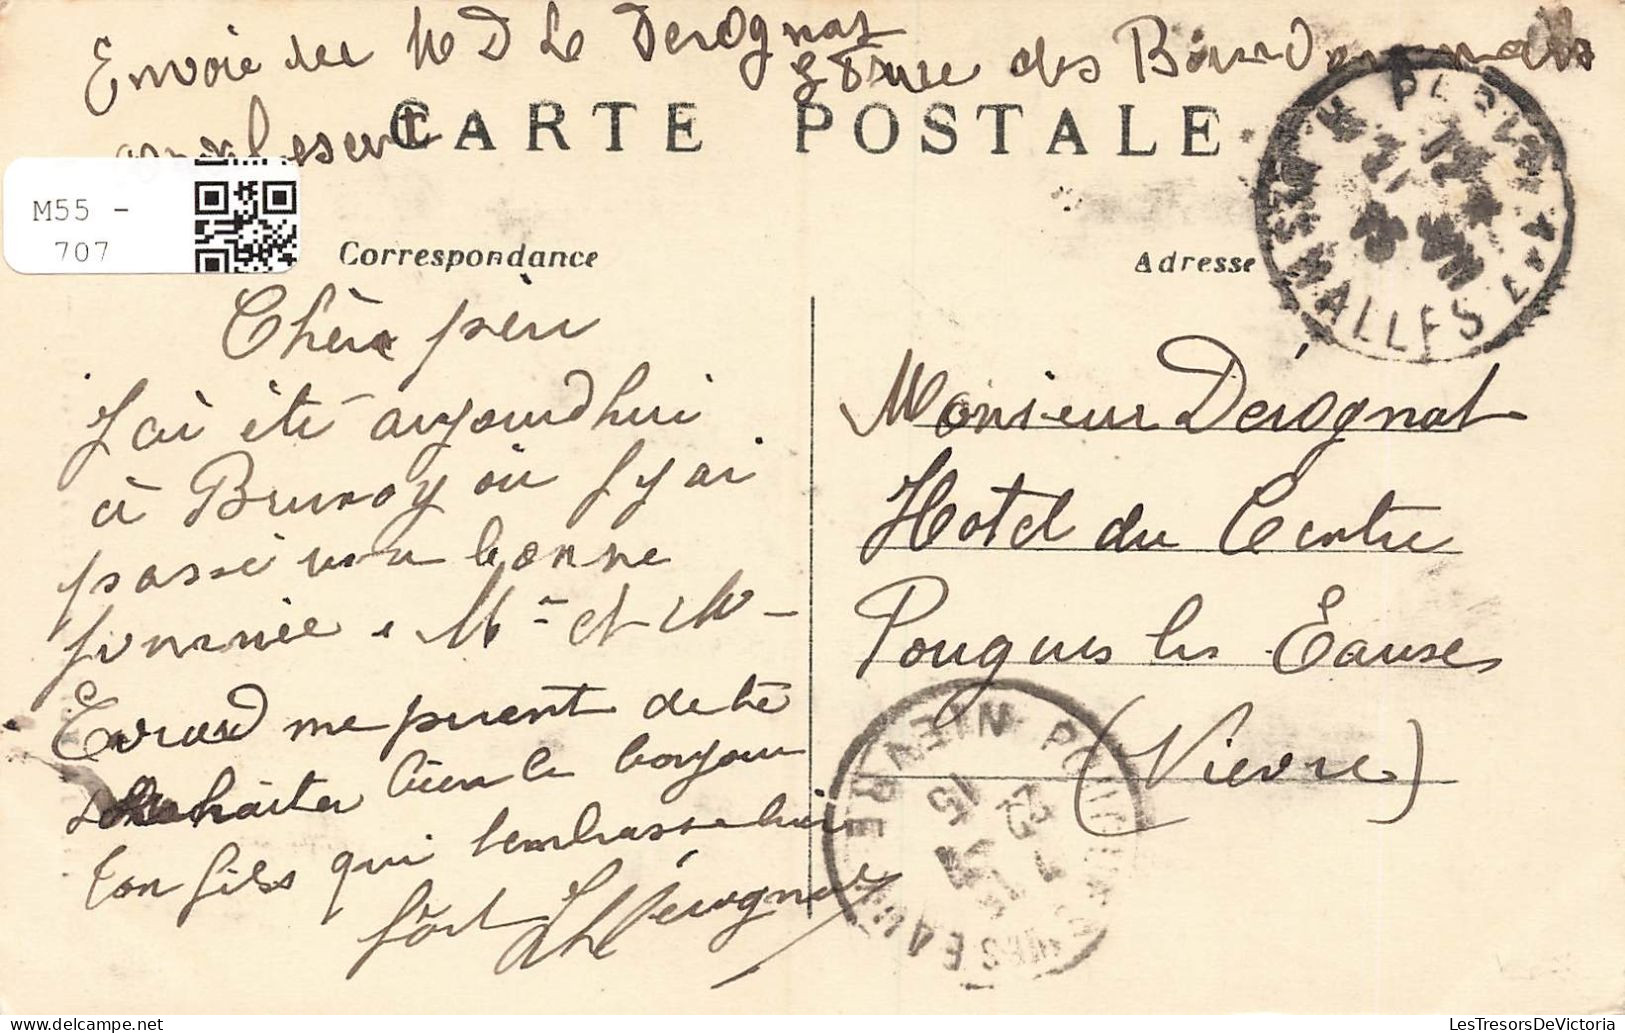 Envoie de M D Le Derognat
rue des
CARTE POSTALE
M55 -
707
Correspondance
Adresse
Chère père
J'ai été aujourd'hui
à Brunoy où j'y ai
passé une bonne
journée. Mr et M
Evrard me prient de te
souhaiter bien le bonjour
ton fils qui t'embrasse bien
fort Derognat
Monsieur Derognat
Hotel du Centre
Pougues les Eauses
(Nievre)
NIEVRE
15
22
LesTresorsDeVictoria.com